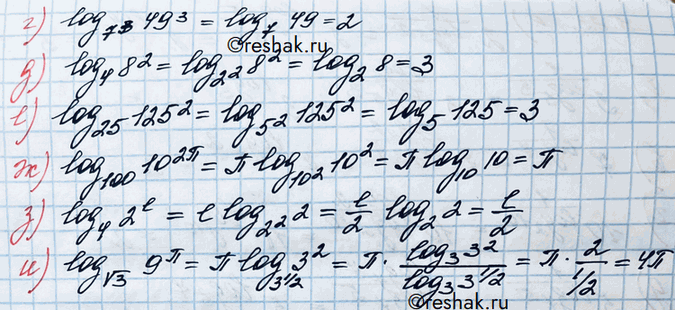 г) log₇³ 49³ = log₇ 49 = 2
©reshak.ru
д) log₄ 8² = log₂² 8² = log₂ 8 = 3
е) log₂₅ 125² = log₅² 125² = log₅ 125 = 3
ж) log₁₀₀ 10^(2π) = π log₁₀² 10² = π log₁₀ 10 = π
з) log₄ 2^e = e log₂² 2 = e/2 log₂ 2 = e/2
и) log_√3 9^π = π log_3^(1/2) 3² = π · log₃ 3² / log₃ 3^(1/2) = π · 2 / 1/2 = 4π
©reshak.ru